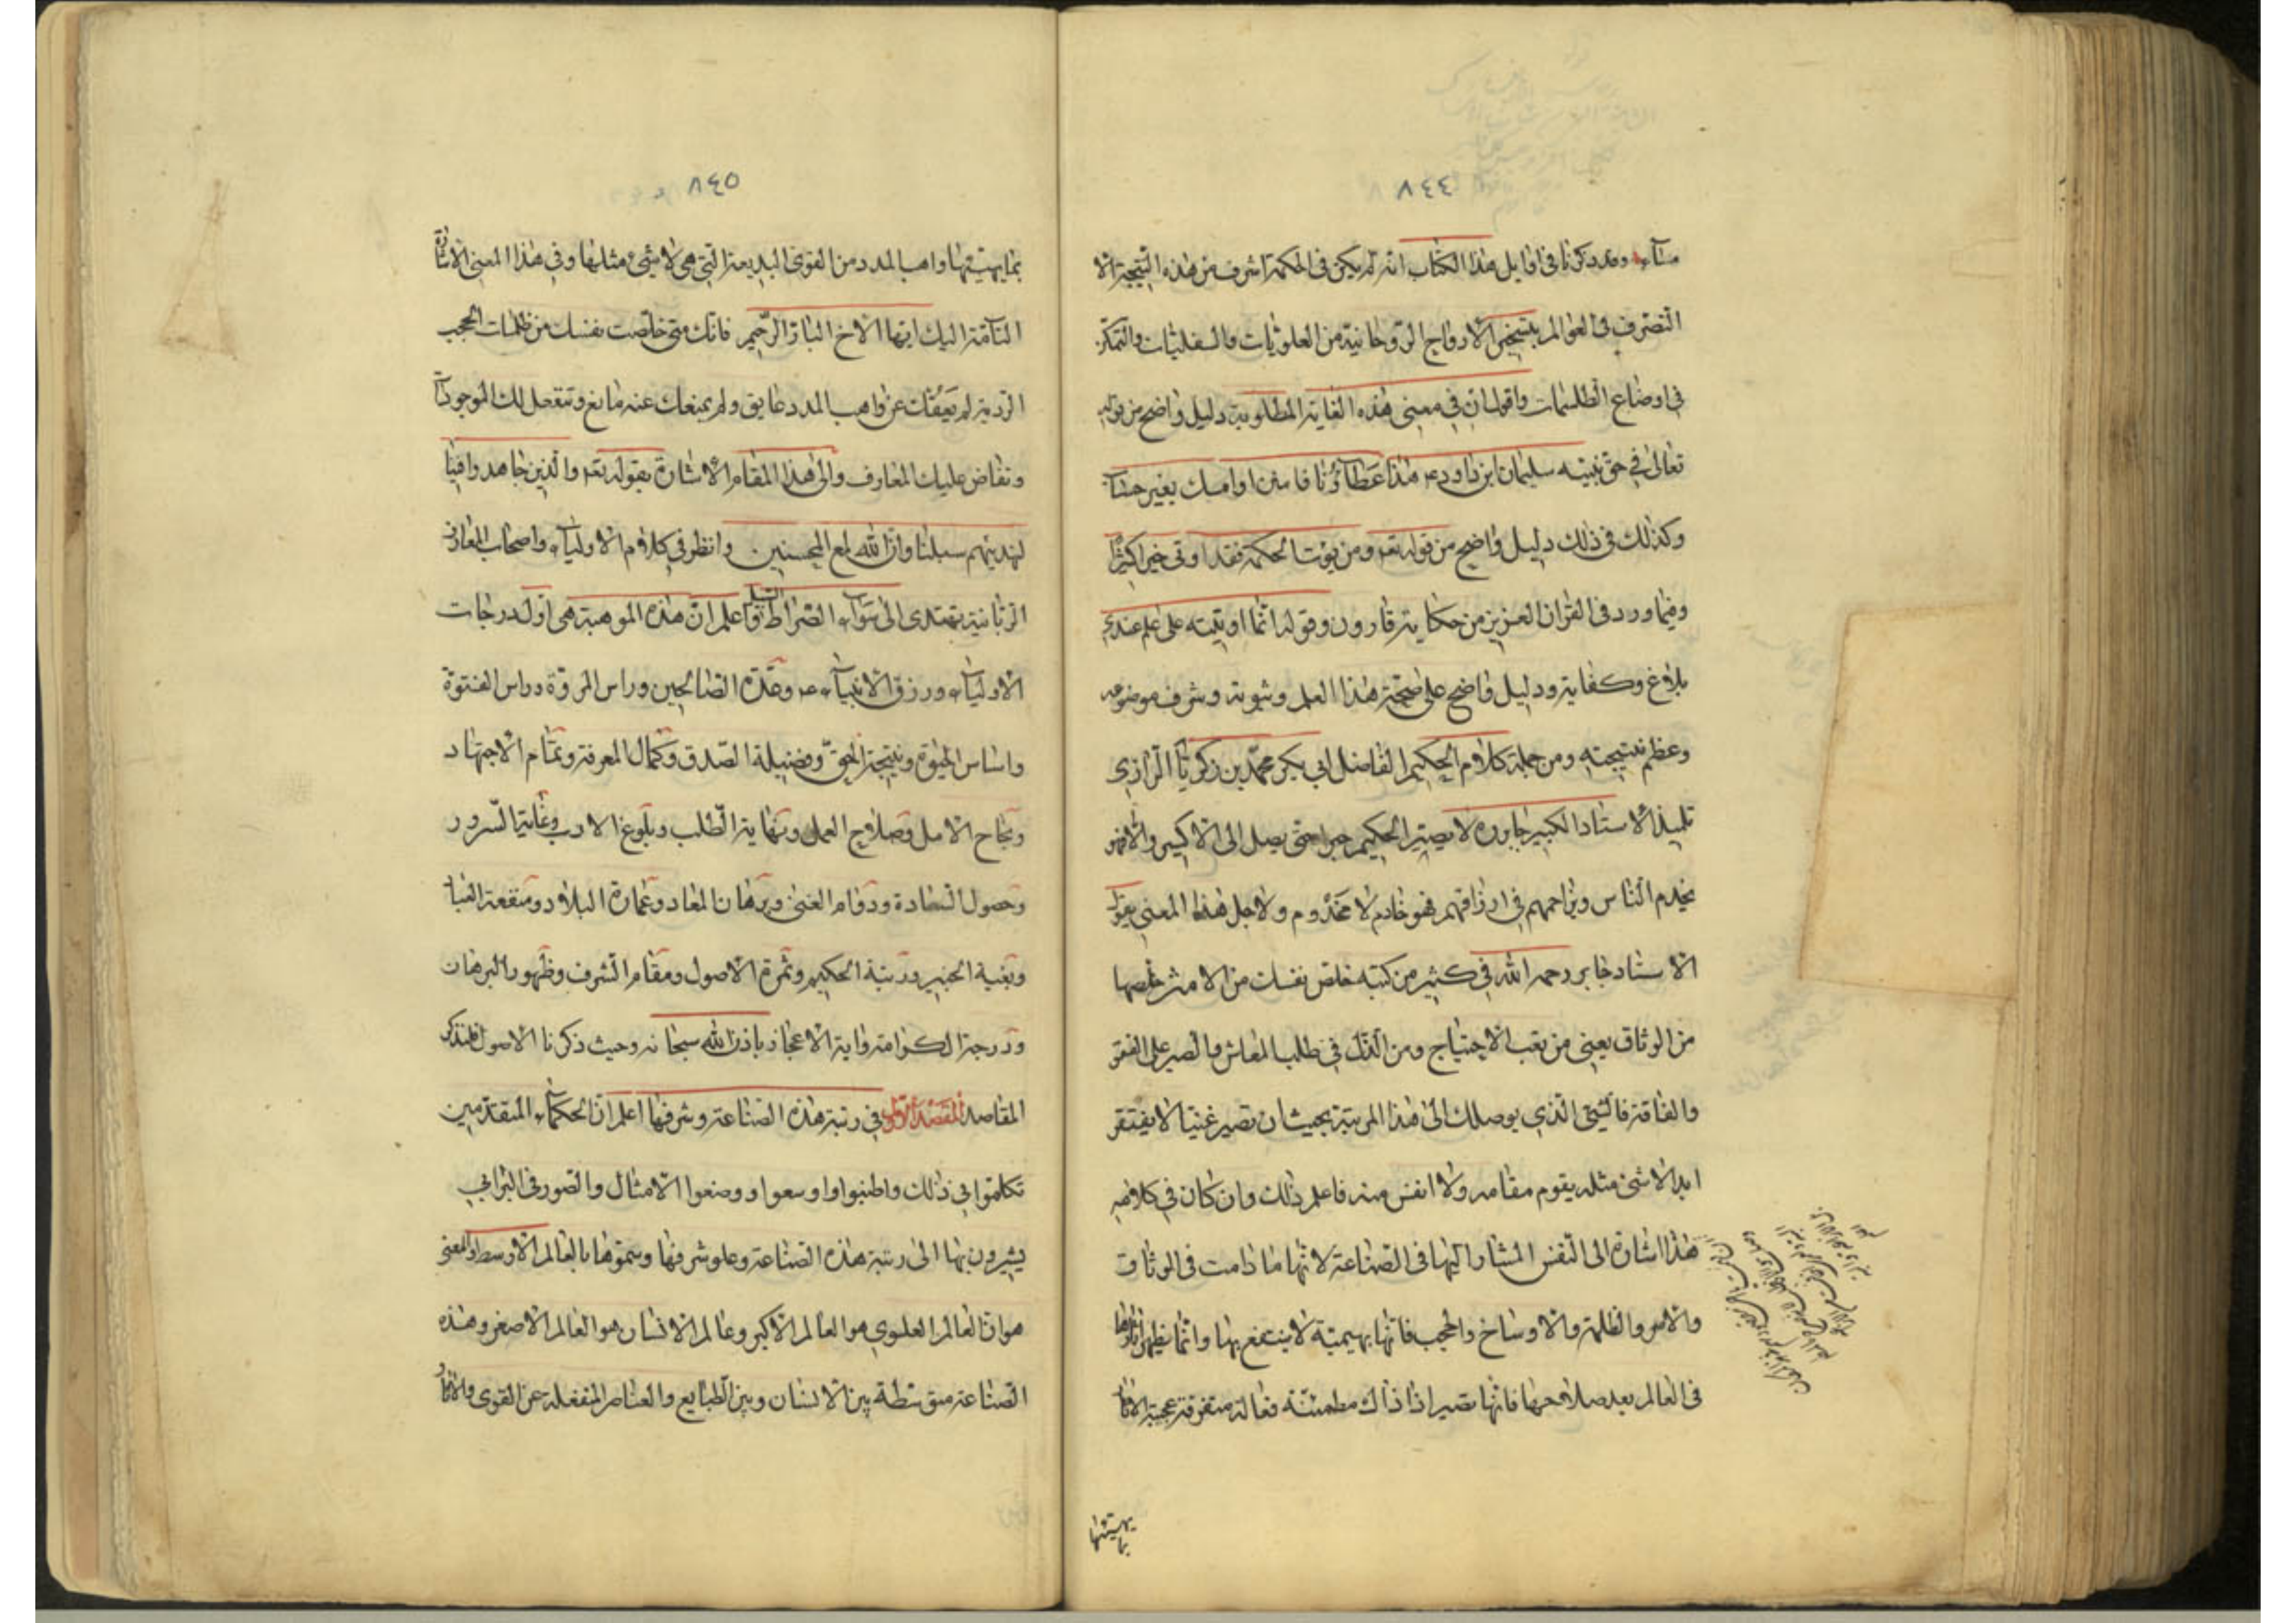 ٨٤٤
وقد ذكرنا فى اوايل هذا الكتاب انه لم يكن فى الحكمة اشرف من هذه النتيجة الا
التصرف فى العوالم بتسخير الارواح الروحانية من العلويات والسفليات والتمكن
فى اوضاع الطلسمات واقول ان فى معنى هذه الغاية المطلوبة دليل واضح من قوله
تعالى فى حق نبيه سليمان ابن داود ع هذا عَطَاؤُنا فامنن او امسك بغير حساب
وكذلك فى ذلك دليل واضح من قوله تعه ومن يؤت الحكمة فقد اوتى خيرا كثيرًا
وفيما ورد فى القران العزيز من حكاية قارون وقوله انما اوتيته على علم عندى
بلاغ وكفاية ودليل واضح على صحّة هذا العلم وثبوته وشرف موضوعه
وعظم نتيجته ومن جملة كلام الحكيم الفاضل ابى بكر محمّد بن زكريّا الرازى
تلميذ الاستاد الكبير جابر ره لا يصير الحكيم حبرا حتى يصل الى الاكسير والا فهو
يخدم الناس ويزاحمهم فى ارزاقهم فهو خادم لا مخدوم ولاجل هذا المعنى يقول
الاستاد جابر رحمه الله فى كثير من كتبه خلص نفسك من الاسر خلصها
من الوثاق يعنى من تعب الاحتياج ومن الذلّ فى طلب المعاش والصبر على الفقر
والفاقة فالشئ الذى يوصلك الى هذا المرتبة بحيث ان تصير غنيا لا يفتقر
ابدا لا شئ مثله يقوم مقامه ولا انفس منه فاعلم ذلك وان كان فى كلامه
هذا اشارة الى النفس المشار اليها فى الصناعة لانها ما دامت فى الوثاق
والاسر والظلمة والاوساخ والحجب فانها بهيمية لا ينتفع بها وانما يظهر اثارها
فى العالم بعد صلاحها فانها تصير اذا ذاك مطمئنّة فعالة متفرقة عجيبة الاثار
بما يهيّئها
٨٤٥
بما يهيّئها واهب المدد من القوى البديعة التى هى لا شئ مثلها وفى هذا المعنى الاشارة
التامّة اليك ايها الاخ البارّ الرّحيم فانك متى خلّصت نفسك من ظلمات الحجب
الرّدية لم يَعُقْك عن واهب المدد عايق ولم يمنعك عنه مانع وتنفصل لك الموجودات
وتفاض عليك المعارف والى هذا المقام الاشارة بقوله تعه والذين جاهدوا فينا
لنهدينهم سبلنا وان الله لمع المحسنين وانظر فى كلام الاولياء واصحاب المعارف
الربانية تهتدى الى سَوآء الصراط واعلم ان هذه الموهبة هى اول درجات
الاولياء ورزق الانبياء ع وعمدة الصالحين وراس المروّة وراس الفتوّة
واساس الحيوة ونتيجة الحقّ وفضيلة الصّدق وكمال المعرفة وتمام الاجتهاد
ونجاح الامل وصلاح العمل ونهاية الطلب وبلوغ الارب وغاية السّرور
وحصول السعادة ودوام الغنى وبرهان المعاد وعمارة البلاد ومنفعة العباد
وبغية الخبير ورتبة الحكيم وثمرة الاصول ومقام الشرف وظهور البرهان
ودرجة الكرامة واية الاعجاز باذن الله سبحانه وحيث ذكرنا الاصول فلنذكر
المقاصد المقصد الاول فى رتبة هذه الصناعة وشرفها اعلم ان الحكماء المتقدّمين
تكلّموا فى ذلك واطنبوا واوسعوا ووضعوا الامثال والصور فى البرابى
يشيرون بها الى رتبة هذه الصناعة وعلو شرفها وسمّوها بالعالم الاوسط والمعنى
هو ان العالم العلوى هو العالم الاكبر وعالم الانسان هو العالم الاصغر وهذه
الصّناعة متوسّطة بين الانسان وبين الطبايع والعناصر المنفعلة عن القوى والاثار